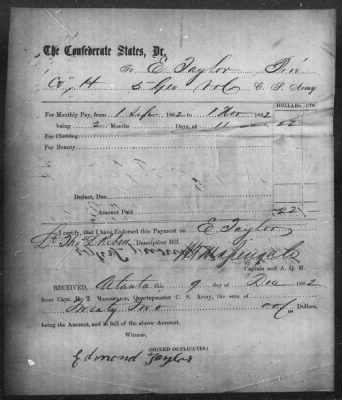 The Confederate States, Dr.
To E Taylor Priv
Co H 5 Geo Vols C. S. Army
DOLLARS. CTS.
For Monthly Pay, from 1 Sept 1862 to 1 Nov 1862
being 2 Months Days, at 11 Month, 22
For Clothing
For Bounty
Deduct, Due,
Amount Paid 22
I certify, that I have Endorsed this Payment on E. Taylor
Descriptive Bill.
Captain and A. Q. M.
RECEIVED, Atlanta this 9 day of Dec 1862
from Capt. H. T. Massengale, Quartermaster C. S. Army, the sum of
Twenty Two 00/100 Dollars,
being the Amount, and in full of the above Account.
Witness,
(SIGNED DUPLICATES)
Edmond Taylor